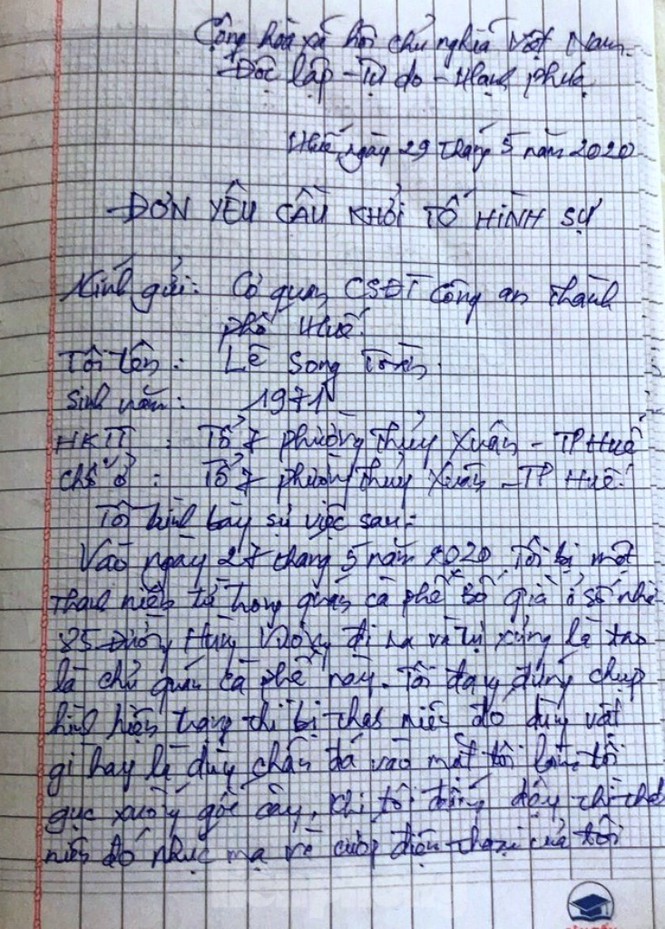 Cộng hòa xã hội chủ nghĩa Việt Nam
Độc lập - Tự do - Hạnh phúc
Huế, ngày 29 tháng 5 năm 2020
ĐƠN YÊU CẦU KHỞI TỐ HÌNH SỰ
Kính gửi: Cơ quan CSĐT Công an thành
phố Huế.
Tôi tên: Lê Song
Sinh năm: 1971
HKTT : Tổ 7 phường Thủy Xuân - TP Huế
Chỗ ở : Tổ 7 phường Thủy Xuân - TP Huế.
Tôi trình bày sự việc sau:
Vào ngày 27 tháng 5 năm 2020 Tôi bị một
thanh niên từ trong quán cà phê Bố già ở số nhà
85 Đường Hùng Vương đi ra và tự xưng là tao
là chủ quán cà phê này. Tôi đang đứng chụp
hình hiện trạng thì bị thanh niên đó dùng vật
gì hay là dùng chân đá vào mặt tôi làm tôi
gục xuống gốc cây, khi tôi đứng dậy thì thanh
niên đó nhục mạ và cướp điện thoại của tôi